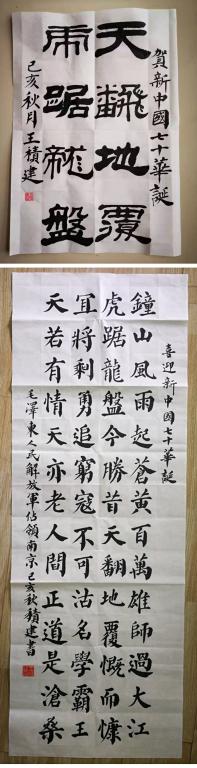 賀新中國七十華誕
天飜地覆
虎踞龍盤
己亥秋月王積建
喜迎新中國七十華誕
鐘山風雨起蒼黃百萬雄師過大江
虎踞龍盤今勝昔天翻地覆慨而慷
宜將剩勇追窮寇不可沽名學霸王
天若有情天亦老人間正道是滄桑
毛澤東人民解放軍佔領南京己亥秋積建書